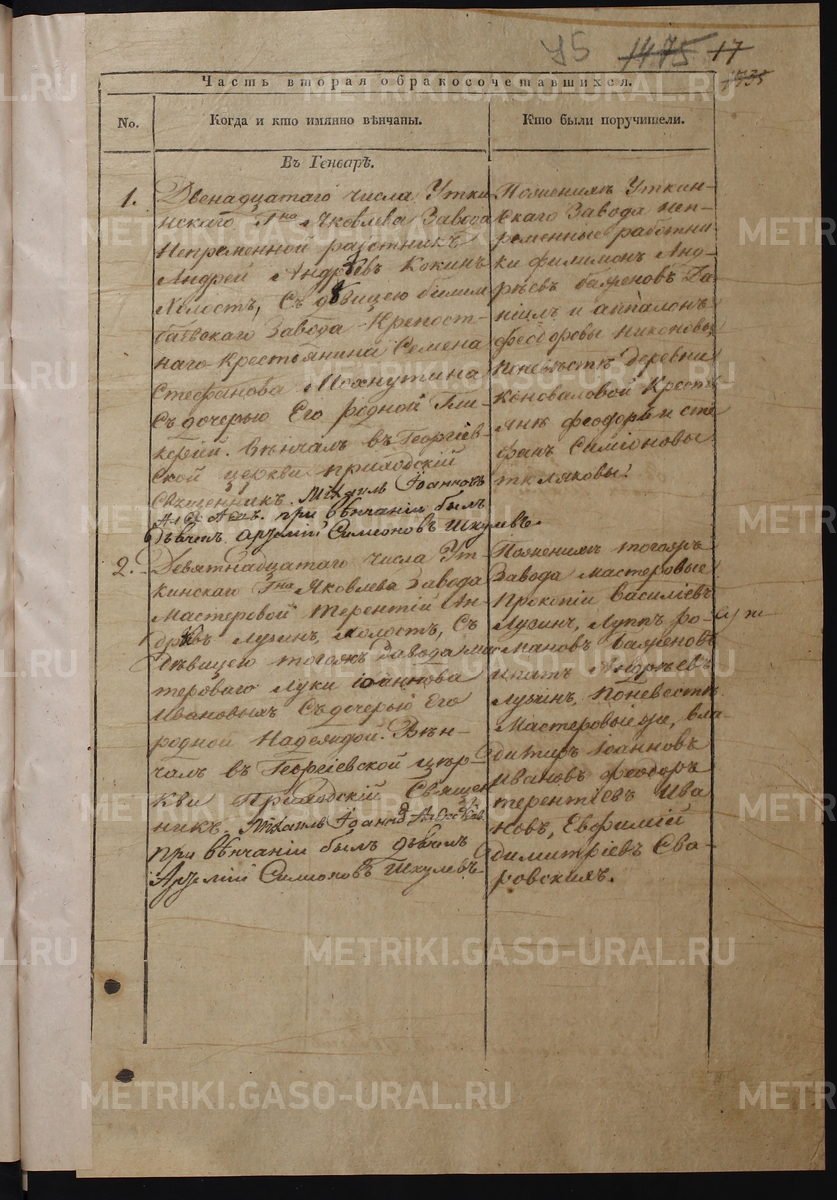 45 1475 17
1735
Часть вторая о бракосочетавшихся.
No.
Когда и кто имянно вѣнчаны.
Кто были поручители.
Въ Генварѣ.
1.
Двенадцатаго числа Утки
нскаго Гна Яковлева Завода
Непременной работникъ
Андрей Андрѣевъ Кокинъ
Холостъ, Съ дѣвицею билим
баевскаго Завода Крепост-
наго крестьянина Семена
Стефанова Мохнутина
Съ дочерью Его родной Гли-
керией. Вѣнчалъ въ Георгіев-
ской церкви приходскій
Священникъ Михаилъ Іоанновъ
при вѣнчаніи былъ
дьячекъ Артемій Симеоновъ Шкулевъ.
Поженихѣ Уткин-
скаго Завода неп-
ременные работни-
ки филимонъ Анд-
рѣевъ баженовъ Да-
ніилъ и апполонъ
феодоровы никоновы
Поневѣстѣ деревни
коноваловой крест
янѣ феодоръ и сте
фанъ Симіоновы
2.
Девятнадцатаго числа Ут
кинскаго Гна Яковлева Завода
Мастеровой терентій Ан-
дрѣевъ Лузинъ, Холостъ, Съ
Дѣвицею тогожъ завода мас
тероваго Луки іоаннова
Ивановыхъ Съ дочерью Его
родной Надеждой. Вѣн-
чалъ въ Георгіевской цер-
кви Приходскій Священ
никъ Михаилъ Іоанновъ
при вѣнчаніи былъ дьячекъ
Артемій Симеоновъ Шкулевъ
Поженихѣ тогожъ
Завода мастеровые
Прокопій василіевъ
Лузинъ, Луппъ ро-
мановъ баженовъ
Андрѣевъ
Лузинъ, Поневестѣ
Мастеровые же, вла-
димиръ іоанновъ
Ивановъ феодоръ
терентіевъ Ива
новъ, Евфимій
димитріевъ Сва-
ровскихъ.
METRIKI.GASO-URAL.RU